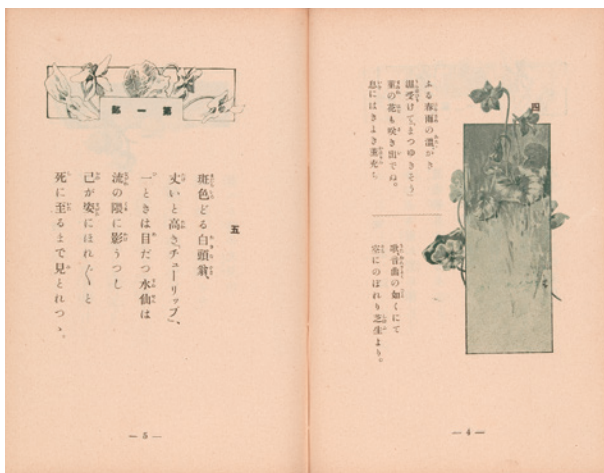 四
ふる春雨の溫かき
濕受けて、まつゆきそう
菫の花も咲き出でね。
息にはきよき薫充ち
歌音曲の如くにて
空にのぼれり芝生より。
— 4 —
第一部
五
斑色どる白頭翁、
丈いと高き、チューリップ、
一ときは目だつ水仙は
流の隈に影うつし
己が姿にほれ〳〵と
死に至るまで見とれつゝ。
— 5 —